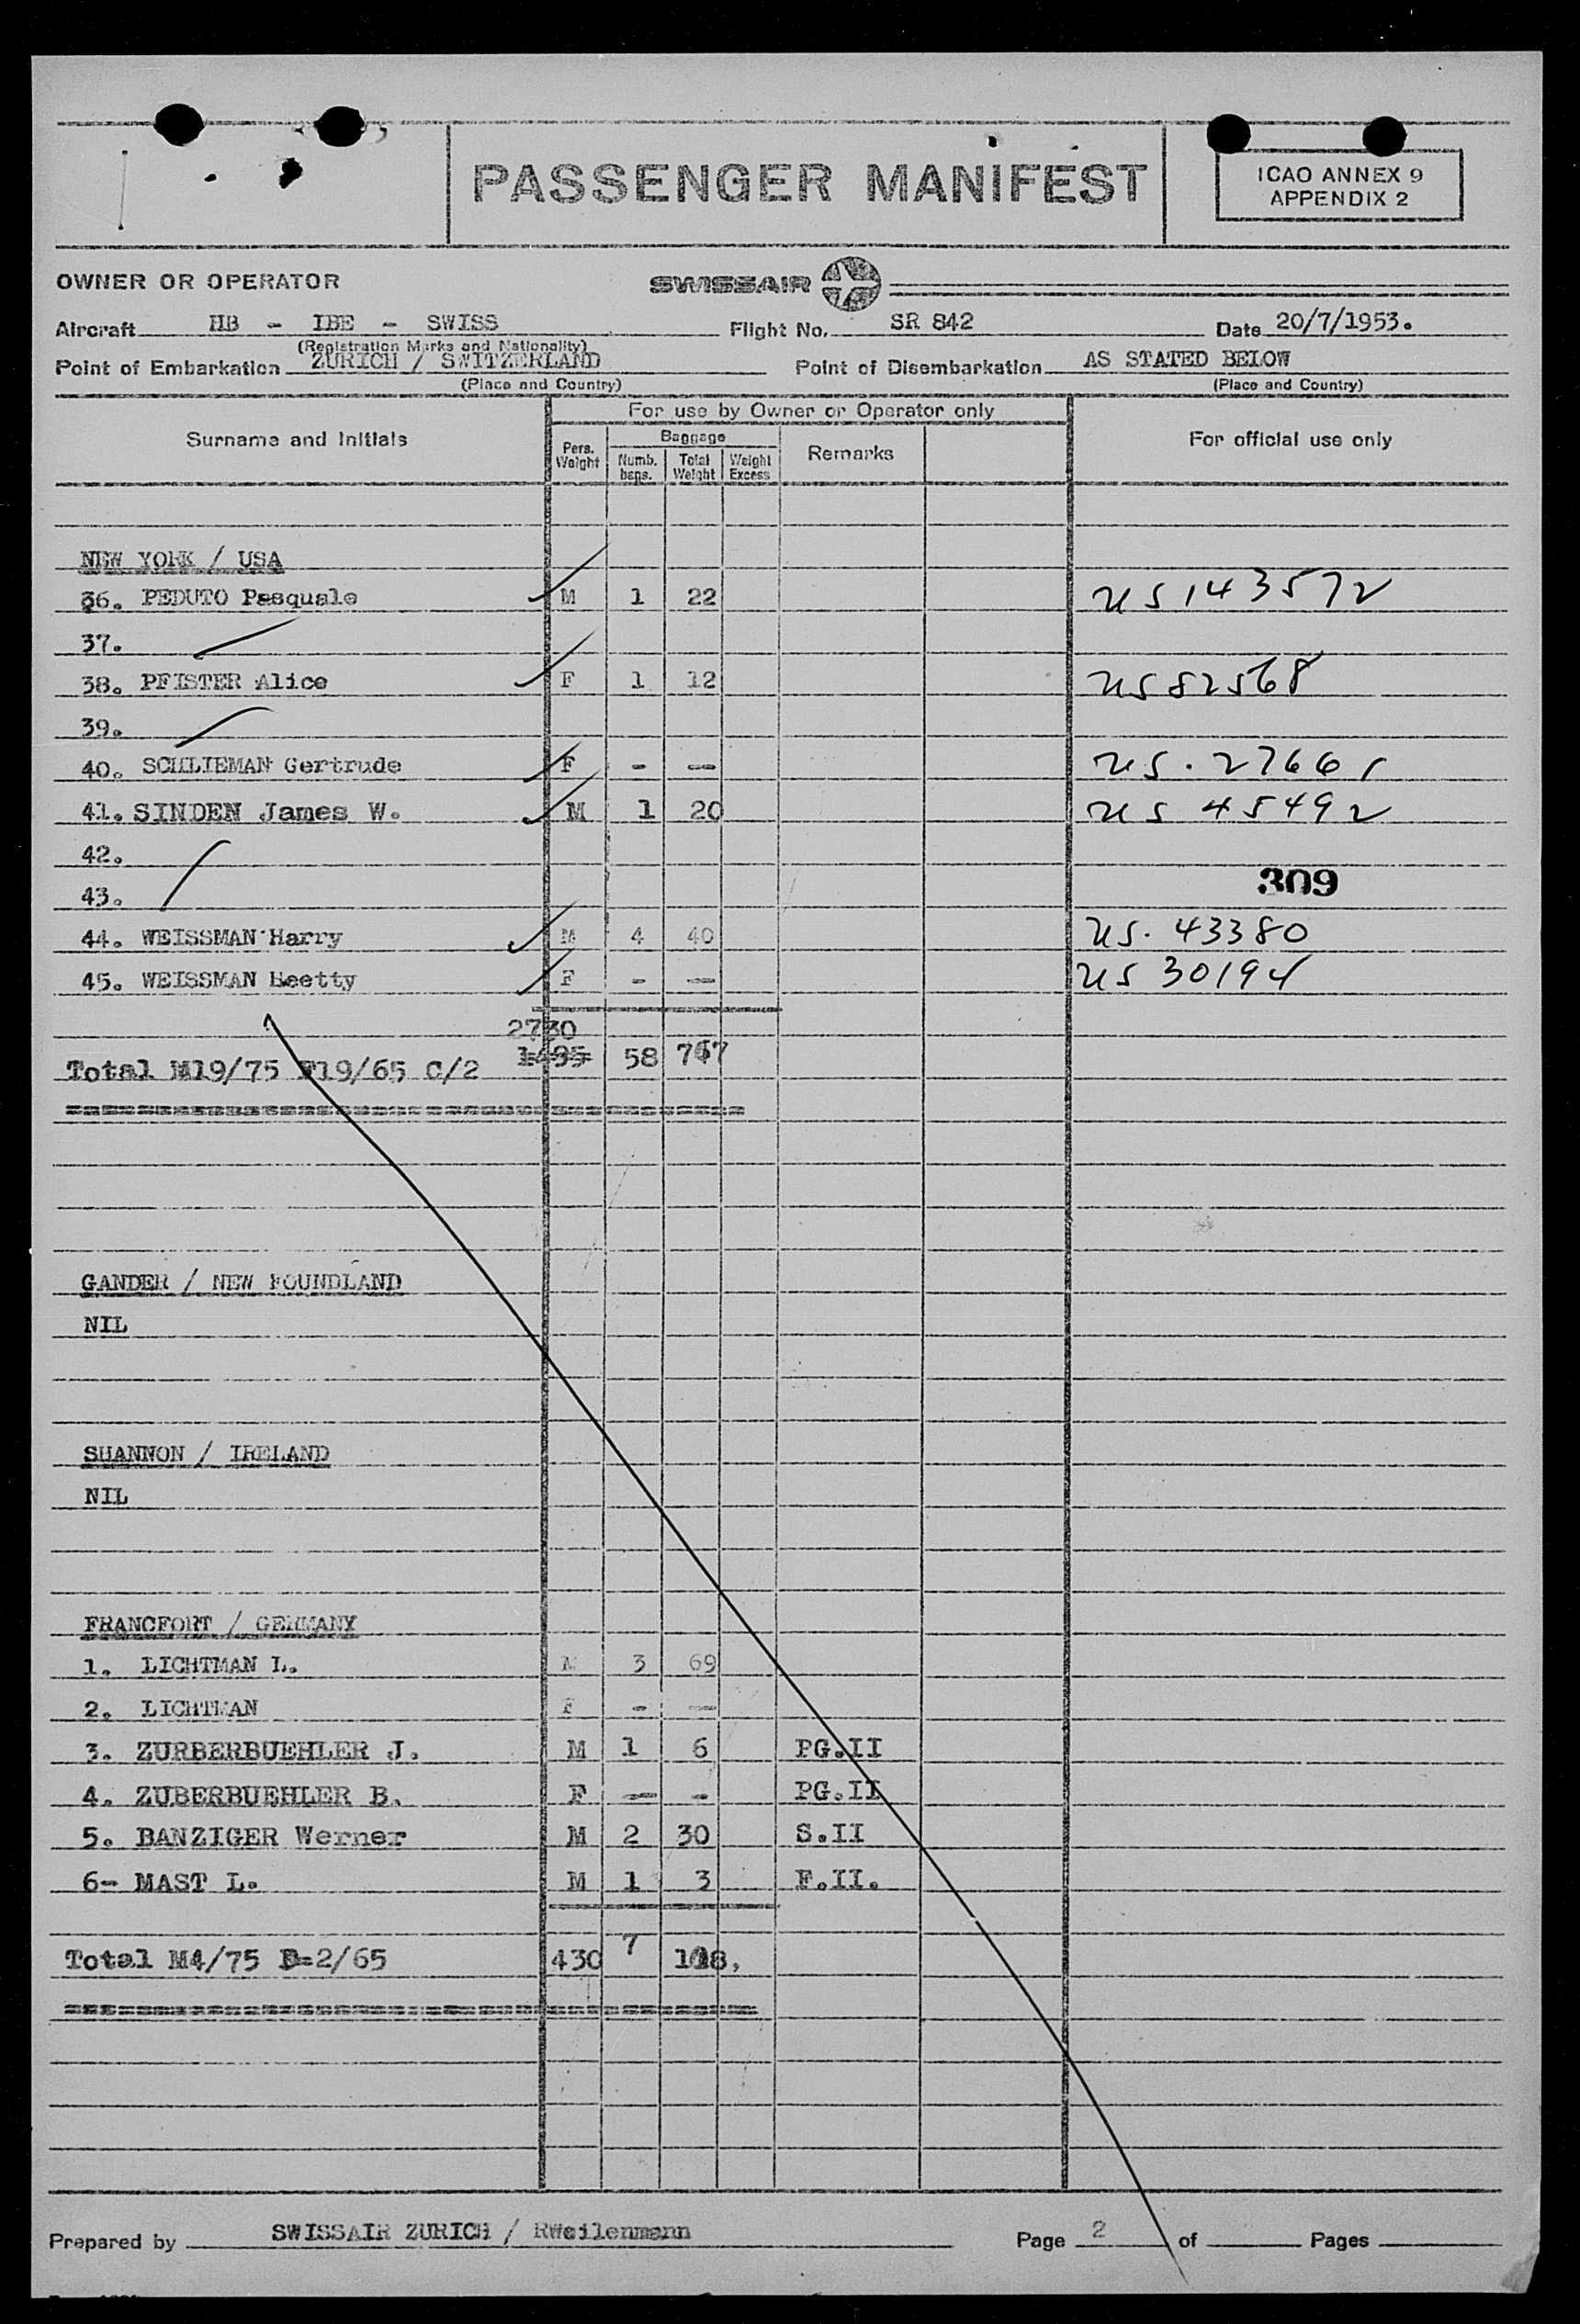 PASSENGER MANIFEST
ICAO ANNEX 9
APPENDIX 2
OWNER OR OPERATOR
SWISSAIR
Aircraft HB - IBE - SWISS Flight No. SR 842 Date 20/7/1953.
(Registration Marks and Nationality)
Point of Embarkation ZURICH / SWITZERLAND Point of Disembarkation AS STATED BELOW
(Place and Country) (Place and Country)
For use by Owner or Operator only
Surname and Initials Pers. Weight Baggage Numb. bags. Total Weight Weight Excess Remarks For official use only
NEW YORK / USA
36. PEDUTO Pasquale M 1 22 US 143572
37.
38. PFISTER Alice F 1 12 US 82568
39.
40. SCHLIEMAN Gertrude F - - US. 27661
41. SINDEN James W. M 1 20 US 45492
42.
43. 309
44. WEISSMAN Harry M 4 40 US. 43380
45. WEISSMAN Beetty F - - US 30194
2730
Total M19/75 F19/65 C/2 1495 58
GANDER / NEW FOUNDLAND
NIL
SHANNON / IRELAND
NIL
FRANCFORT / GERMANY
1. LICHTMAN L. M 3 69
2. LICHTMAN F - -
3. ZURBERBUEHLER J. M 1 6 PG.II
4. ZUBERBUEHLER B. F - - PG.II
5. BANZIGER Werner M 2 30 S.II
6- MAST L. M 1 3 F.II.
Total M4/75 D=2/65 430 7
Prepared by SWISSAIR ZURICH / RWeilenmann Page 2 of Pages